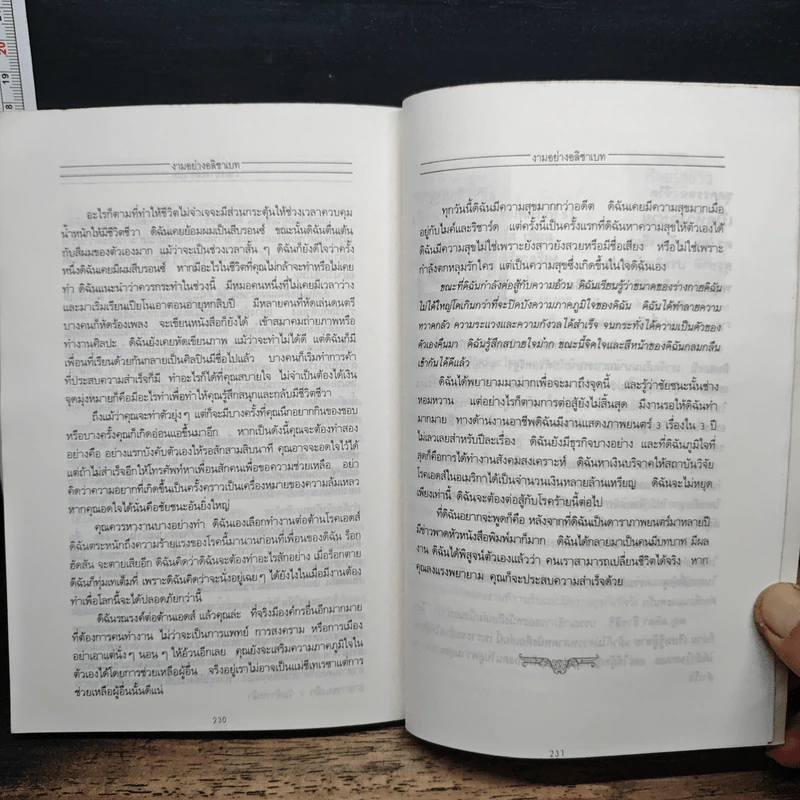 20
19
8
งามอย่างอลิซาเบท
อะไรก็ตามที่ทำให้ชีวิตไม่จำเจจะมีส่วนกระตุ้นให้ช่วงเวลาควบคุม
น้ำหนักให้มีชีวิตชีวา ดิฉันเคยย้อมผมเป็นสีบรอนซ์ ขณะนั้นดิฉันตื่นเต้น
กับสีผมของตัวเองมาก แม้ว่าจะเป็นช่วงเวลาสั้น ๆ ดิฉันก็ยังดีใจว่าครั้ง
หนึ่งดิฉันเคยมีผมสีบรอนซ์ หากมีอะไรในชีวิตที่คุณไม่กล้าจะทำหรือไม่เคย
ทำ ดิฉันแนะนำว่าควรกระทำในช่วงนี้ มีหมอคนหนึ่งที่ไม่เคยมีเวลาว่าง
และมาเริ่มเรียนเปียโนเอาตอนอายุหกสิบปี มีหลายคนที่หัดเล่นดนตรี
บางคนก็หัดร้องเพลง จะเขียนหนังสือก็ยังได้ เข้าสมาคมถ่ายภาพหรือ
ทำงานศิลปะ ดิฉันยังเคยหัดเขียนภาพ แม้ว่าจะทำไม่ได้ดี แต่ดิฉันก็มี
เพื่อนที่เรียนด้วยกันกลายเป็นศิลปินมีชื่อไปแล้ว บางคนก็เริ่มทำการค้า
ที่ประสบความสำเร็จก็มี ทำอะไรก็ได้ที่คุณสบายใจ ไม่จำเป็นต้องได้เงิน
จุดมุ่งหมายก็คือมีอะไรทำเพื่อทำให้คุณรู้สึกสนุกและกลับมีชีวิตชีวา
ถึงแม้ว่าคุณจะทำตัวยุ่งๆ แต่ก็จะมีบางครั้งที่คุณนึกอยากกินของชอบ
หรือบางครั้งคุณก็เกิดอ่อนแอขึ้นมาอีก หากเป็นดังนี้คุณจะต้องทำสอง
อย่างคือ อย่างแรกบังคับตัวเองให้รอสักสามสิบนาที คุณอาจจะอดใจไว้ได้
แต่ถ้าไม่สำเร็จอีกให้โทรศัพท์หาเพื่อนสักคนเพื่อขอความช่วยเหลือ อย่า
คิดว่าความอยากที่เกิดขึ้นเป็นครั้งคราวเป็นเครื่องหมายของความล้มเหลว
หากคุณอดใจได้นั่นคือชัยชนะอันยิ่งใหญ่
คุณควรหางานบางอย่างทำ ดิฉันเองเลือกทำงานต่อต้านโรคเอดส์
ดิฉันตระหนักถึงความร้ายแรงของโรคนี้มานานก่อนที่เพื่อนของดิฉัน ร็อก
ฮัดสัน จะตายเสียอีก ดิฉันคิดว่าดิฉันจะต้องทำอะไรสักอย่าง เมื่อร็อกตาย
ดิฉันก็ทุ่มเทเต็มที่ เพราะดิฉันคิดว่าจะนั่งอยู่เฉยๆ ได้ยังไงในเมื่อมีงานต้อง
ทำเพื่อโลกนี้จะได้ปลอดภัยกว่านี้
ดิฉันรณรงค์ต่อต้านเอดส์ แล้วคุณล่ะ ที่จริงมีองค์กรอื่นอีกมากมาย
ที่ต้องการคนทำงาน ไม่ว่าจะเป็นการแพทย์ การสงคราม หรือการเมือง
อย่าเอาแต่นั่งๆ นอน ๆ ให้อ้วนอีกเลย คุณยังจะเสริมความภาคภูมิใจใน
ตัวเองได้โดยการช่วยเหลือผู้อื่น จริงอยู่เราไม่อาจเป็นแม่ชีเทเรซาแต่การ
ช่วยเหลือผู้อื่นนั้นดีแน่
230
งามอย่างอลิซาเบท
ทุกวันนี้ดิฉันมีความสุขมากกว่าอดีต ดิฉันเคยมีความสุขมากเมื่อ
อยู่กับไมค์และริชาร์ด แต่ครั้งนี้เป็นครั้งแรกที่ดิฉันหาความสุขให้ตัวเองได้
ดิฉันมีความสุขไม่ใช่เพราะยังสาวยังสวยหรือมีชื่อเสียง หรือไม่ใช่เพราะ
กำลังตกหลุมรักใคร แต่เป็นความสุขซึ่งเกิดขึ้นในใจดิฉันเอง
ขณะที่ดิฉันกำลังต่อสู้กับความอ้วน ดิฉันเรียนรู้ว่าขนาดของร่างกายดิฉัน
ไม่ได้ใหญ่โตเกินกว่าที่จะปิดบังความภาคภูมิใจของดิฉัน ดิฉันได้ทำลายความ
หวาดกลัว ความระแวงและความกังวลได้สำเร็จ จนกระทั่งได้ความเป็นตัวของ
ตัวเองคืนมา ดิฉันรู้สึกสบายใจมาก ขณะนี้จิตใจและสีหน้าของดิฉันกลมกลืน
เข้ากันได้ดีแล้ว
ดิฉันได้พยายามมามากเพื่อจะมาถึงจุดนี้ และรู้ว่าชัยชนะนั้นช่าง
หอมหวาน แต่อย่างไรก็ตามการต่อสู้ยังไม่สิ้นสุด มีงานรอให้ดิฉันทำ
มากมาย ทางด้านงานอาชีพดิฉันมีงานแสดงภาพยนตร์ 3 เรื่องใน 3 ปี
ไม่เลวเลยสำหรับปีละเรื่อง ดิฉันยังมีธุรกิจบางอย่าง และที่ดิฉันภูมิใจที่
สุดก็คือการได้ทำงานสังคมสงเคราะห์ ดิฉันหาเงินบริจาคให้สถาบันวิจัย
โรคเอดส์ในอเมริกาได้เป็นจำนวนเงินหลายล้านเหรียญ ดิฉันจะไม่หยุด
เพียงเท่านี้ ดิฉันจะต้องต่อสู้กับโรคร้ายนี้ต่อไป
ที่ดิฉันอยากจะพูดก็คือ หลังจากที่ดิฉันเป็นดาราภาพยนตร์มาหลายปี
มีข่าวพาดหัวหนังสือพิมพ์มาก็มาก ดิฉันได้กลายมาเป็นคนมีบทบาท มีผล
งาน ดิฉันได้พิสูจน์ตัวเองแล้วว่า คนเราสามารถเปลี่ยนชีวิตได้จริง หาก
คุณลงแรงพยายาม คุณก็จะประสบความสำเร็จด้วย
231